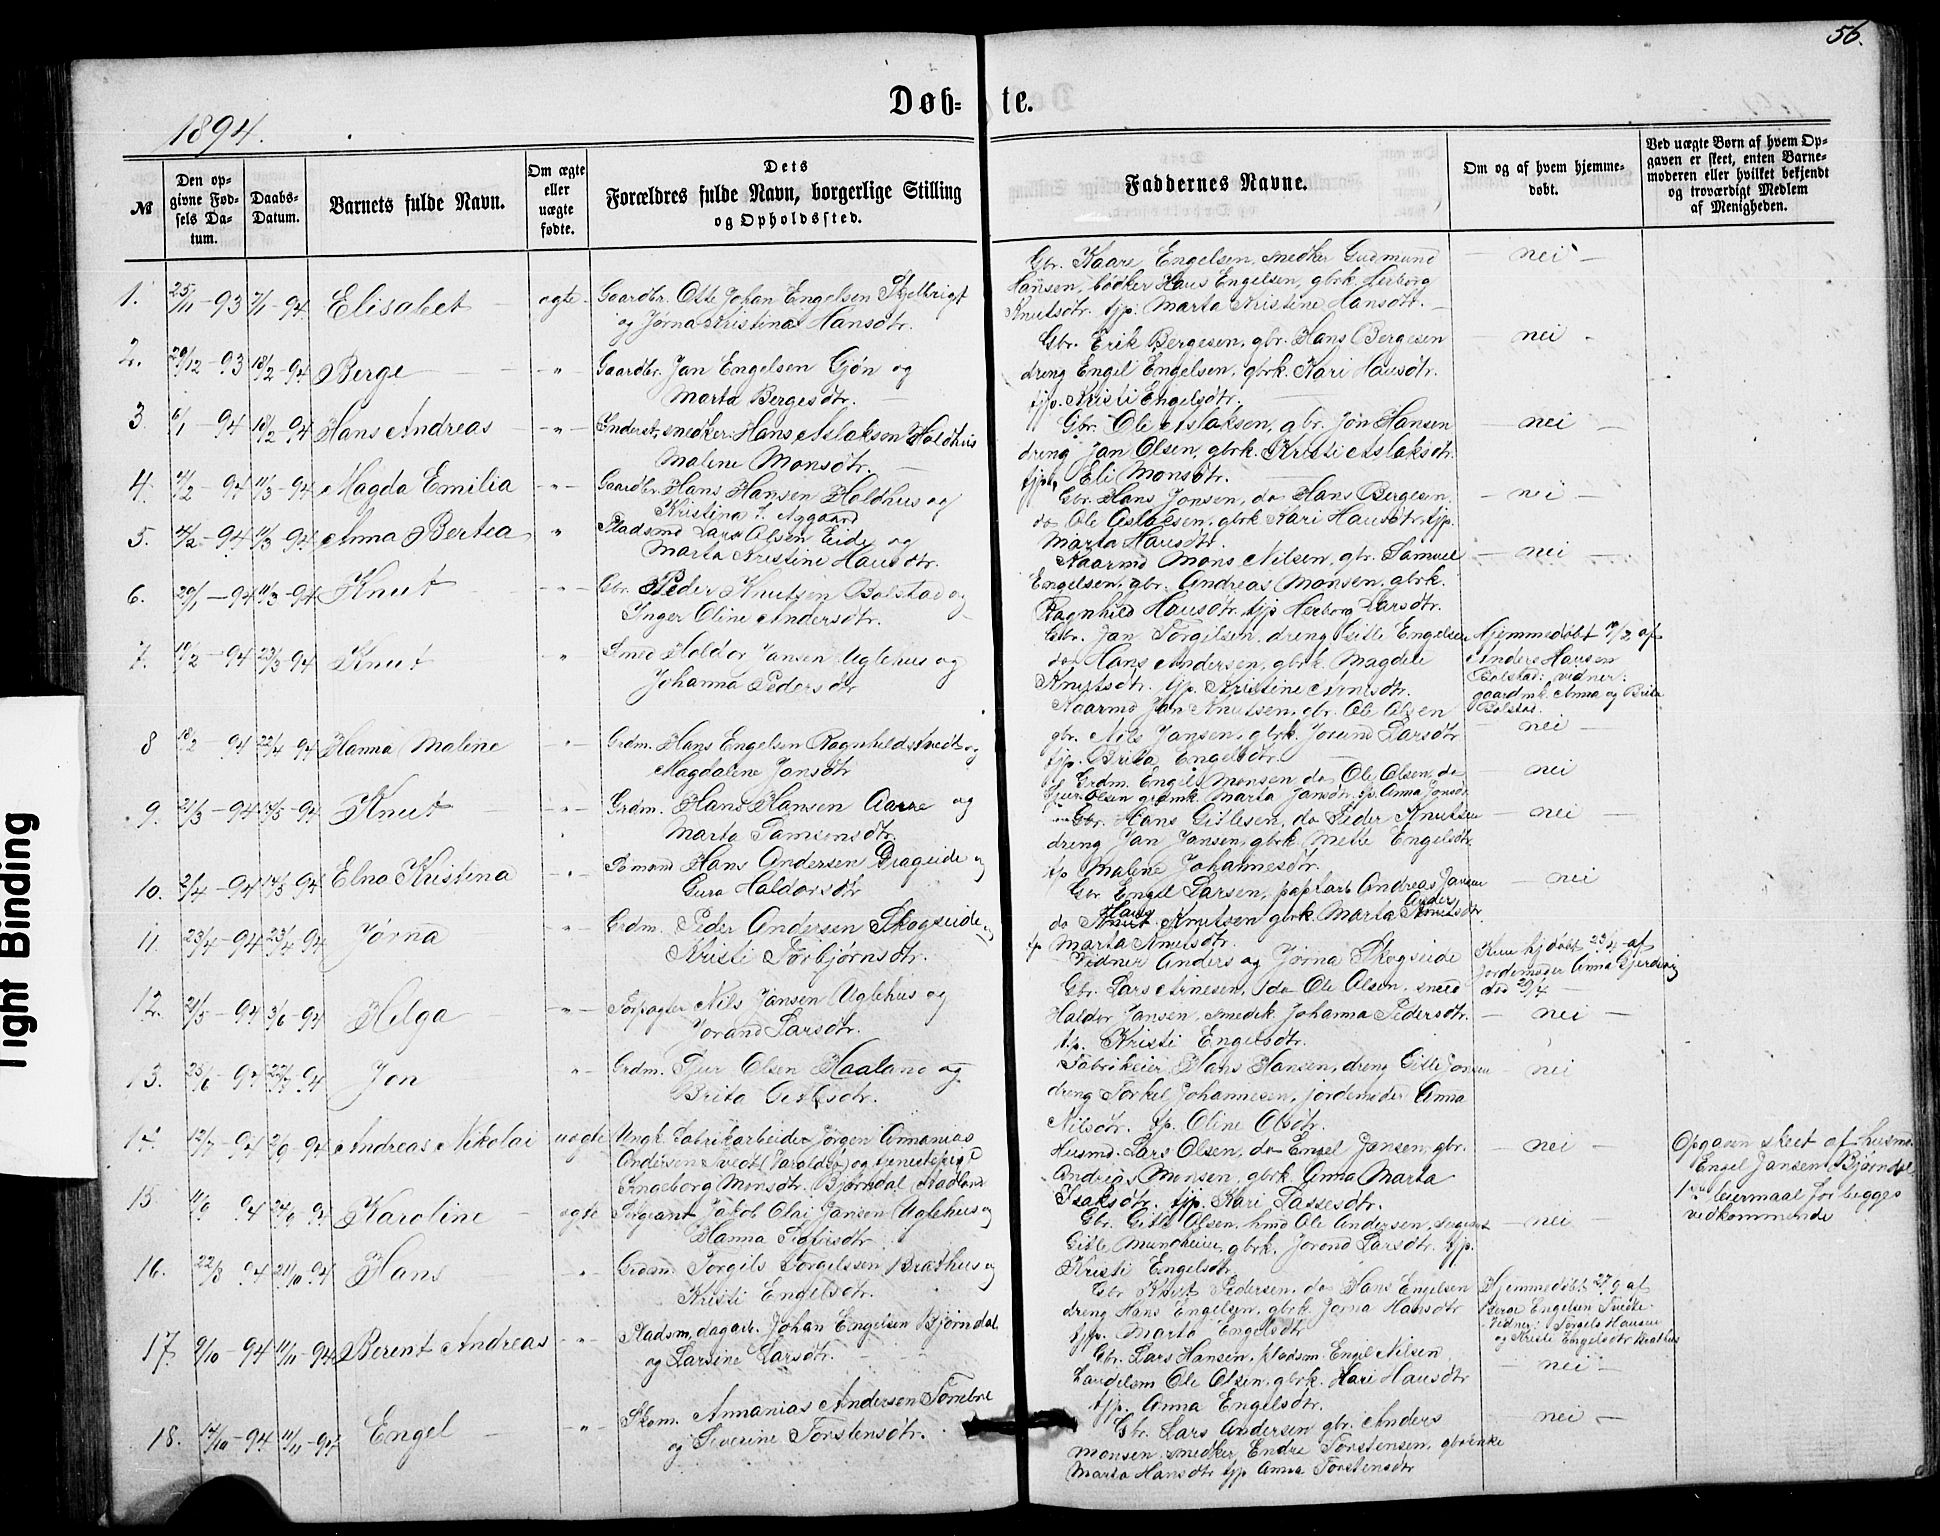 56.
Døb-
te.
1894.
№
Den op-
givne Fød-
sels Da-
tum.
Daabs-
Datum.
Barnets fulde Navn.
Om ægte
eller
uægte
fødte.
Dets
Forældres fulde Navn, borgerlige Stilling
og Opholdssted.
Faddernes Navne.
Om og af hvem hjemme-
døbt.
Ved uægte Børn af hvem Op-
gaven er skeet, enten Barne-
moderen eller hvilket bekjendt
og troværdigt Medlem
af Menigheden.
1. 25/11-93 7/1-94 Elisabet ægte Gaardbr. Otte Johan Engelsen Skjelbrigt
og Jørna Kristina Hansdtr.
Gbr. Kaare Engelsen, snedker Gudmund
Hansen, bødker Hans Engelsen, gbrk. Herborg
Knutsdtr. tjp. Marta Kristine Hansdtr.
nei
2. 29/12-93 18/2-94 Berge -"- Gaardbr. Jan Engelsen Gjøn og
Marta Bergesdtr.
Gbr. Erik Bergesen, gbr. Hans Bergesen
dreng Engel Engelsen, gbrk. Kari Hansdtr.
tjp. Kristi Engelsdtr.
nei
3. 6/1-94 18/2-94 Hans Andreas -"- Inderst, snedker Hans Aslaksen Holdhus
Malene Monsdtr.
Gbr. Ole Aslaksen, gbr. Jon Hansen
dreng Jan Olsen, gbrk. Kristi Aslaksdtr.
tjp. Eli Monsdtr.
nei
4. 11/2-94 11/3-94 Magda Emilia -"- Gaardbr. Hans Hansen Holdhus og
Kristina Aggaard
Gbr. Hans Jonsen, do Hans Bergesen,
do Ole Aslaksen, gbrk Kari Hansdtr, tjp.
Marta Hansdtr.
nei
5. 4/2-94 11/3-94 Anna Bertea " Pladsmd Lars Olsen Eide og
Marta Kristine Hansdtr.
Kaarmd Mons Nilsen, gbr. Samuel
Engelsen, gbr. Andreas Monsen, gbrk.
Ragnhild Hansdtr, tjp Herborg Larsdtr.
nei
6. 20/1-94 11/3-94 Knut -"- Gbr. Peder Knutsen Bolstad og
Inger Oline Andersdtr.
Gbr. Jan Torgilsen, dreng Gitle Engelsen
do Hans Andersen, gbrk. Magdele
Knutsdtr. tjp. Kristine Arnesdtr.
Hjemmedøbt 19/2 af
Anders Hansen
Bolstad: vidner:
gaardmk. Anna og Brita
Bolstad.
7. 19/2-94 23/3-94 Knut " Smed Haldor Jansen Uglehus og
Johanna Pedersdtr
Kaarmd Jan Knutsen, gbr. Ole Olsen
gbr. Nils Jansen, gbrk. Jorund Larsdtr
tjp. Brita Engelsdtr.
nei
8 18/2 94 22/4-94 Hanna Malene -"- Grdm. Hans Engelsen Ragnhildstvedt og
Magdalene Jansdtr
Grdm. Engel Monsen, do Ole Olsen, do
Sjur Olsen grdmk. Marta Jansdtr. tp. Anna Jonsdtr
nei
9. 21/3-94 14/5-94 Knut -"- Grdm. Hans Hansen Aarre og
Marta Samsonsdtr.
Gbr. Hans Gitlesen, do Peder Knutsen
dreng Jan Jansen, gbrk. Mette Engelsdtr
tp Malene Johannesdtr.
nei
10. 2/4-94 14/5-94 Elna Kristina -"- Sømand Hans Andersen Drageide og
Guro Haldorsdtr
Gbr Engel Larsen, paptarb Andreas Jansen
do Hans Knutsen gbrk. Marta Andersdtr.
tp Marta Knutsdtr.
nei
11. 23/4-94 23/4-94 Jørna -"- Grdm. Peder Andersen Skogseide og
Kristi Torbjørnsdtr.
Vidner Anders og Jørna Skogseide
Kun hjdøbt 23/4 af
jordemoder Anna Gjerdevig
død 29/4
12. 21/5-94 3/6-94 Helga -"- Forpagter Nils Jansen Uglehus og
Jorand Larsdtr.
Gbr. Lars Arnesen, do Ole Olsen, smed
Haldor Jansen, smedk. Johanna Pedersdtr.
tp. Kristi Engelsdtr.
nei
13. 25/6-94 22/7-94 Jon " Grdm. Sjur Olsen Haaland og
Brita Gitlesdtr.
Fabrikeier Hans Hansen, dreng Gitle Jonsen
dreng Torkel Johannesen, jordemoder Anna
Nilsdtr. tp. Oline Olsdtr.
nei
14. 12/7-94 2/9-94 Andreas Nikolai uægte Ungk. Fabrikarbeider Jørgen Annanias
Andersen Tvedt (Varaldsø) og tjenestepige
Ingeborg Monsdtr. Bjørndal, Aadland
Husmd. Lars Olsen, do Engel Jansen, gbr.
Andreas Monsen, gbrk Anna Marta
Isaksdtr. tjp. Kari Lassesdtr.
nei
Opgaven skeet af husmd
Engel Jansen Bjørndal
1ste leiermaal for begges
vedkommende
15 11/9 94 24/9 94 Karoline ægte Sergeant Jakob Olai Janson Uglehus og
Hanna Sjursdtr
Gbr. Gitle Olsen, hmd Ole Andersen, sergeant
Gitle Mundheim, gbrk. Jorond Larsdtr. tjp.
Kristi Engelsdtr.
nei
16. 22/8 94 21/10 94 Hans -"- Grdmd. Torgils Torgilssen Brathus og
Kristi Engelsdtr.
Gbr Knut Pedersen, do Hans Engelsen
dreng Hans Engelsen, gbrk. Jorna Hansdtr
tjp. Marta Engelsdtr
Hjemmedøbt 27/9 af
Berge Engelsen Tveite.
Vidner: Torgels Hansen
og Kristi Engelsdtr Brathus
17. 9/10-94 11/11-94 Berent Andreas -"- Pladsm, dagarb. Johan Engelsen Bjørndal
og Larsine Larsdtr.
Gbr. Lars Hansen, pladsm. Engel Nilsen
Landelsm Ole Olsen, gbrk. Kari Hansdtr
tjp. Anna Engelsdtr.
nei
18. 17/10-94 11/11-94 Engel -"- Skom. Annanias Andersen Tombre
og Severine Torstensdtr.
Gbr. Lars Andersen gbr. Anders
Monsen, snedker Endre Torstensen, gbrenke
Marta Hansdtr tjp Anna Torstensdtr
nei
Tight Binding